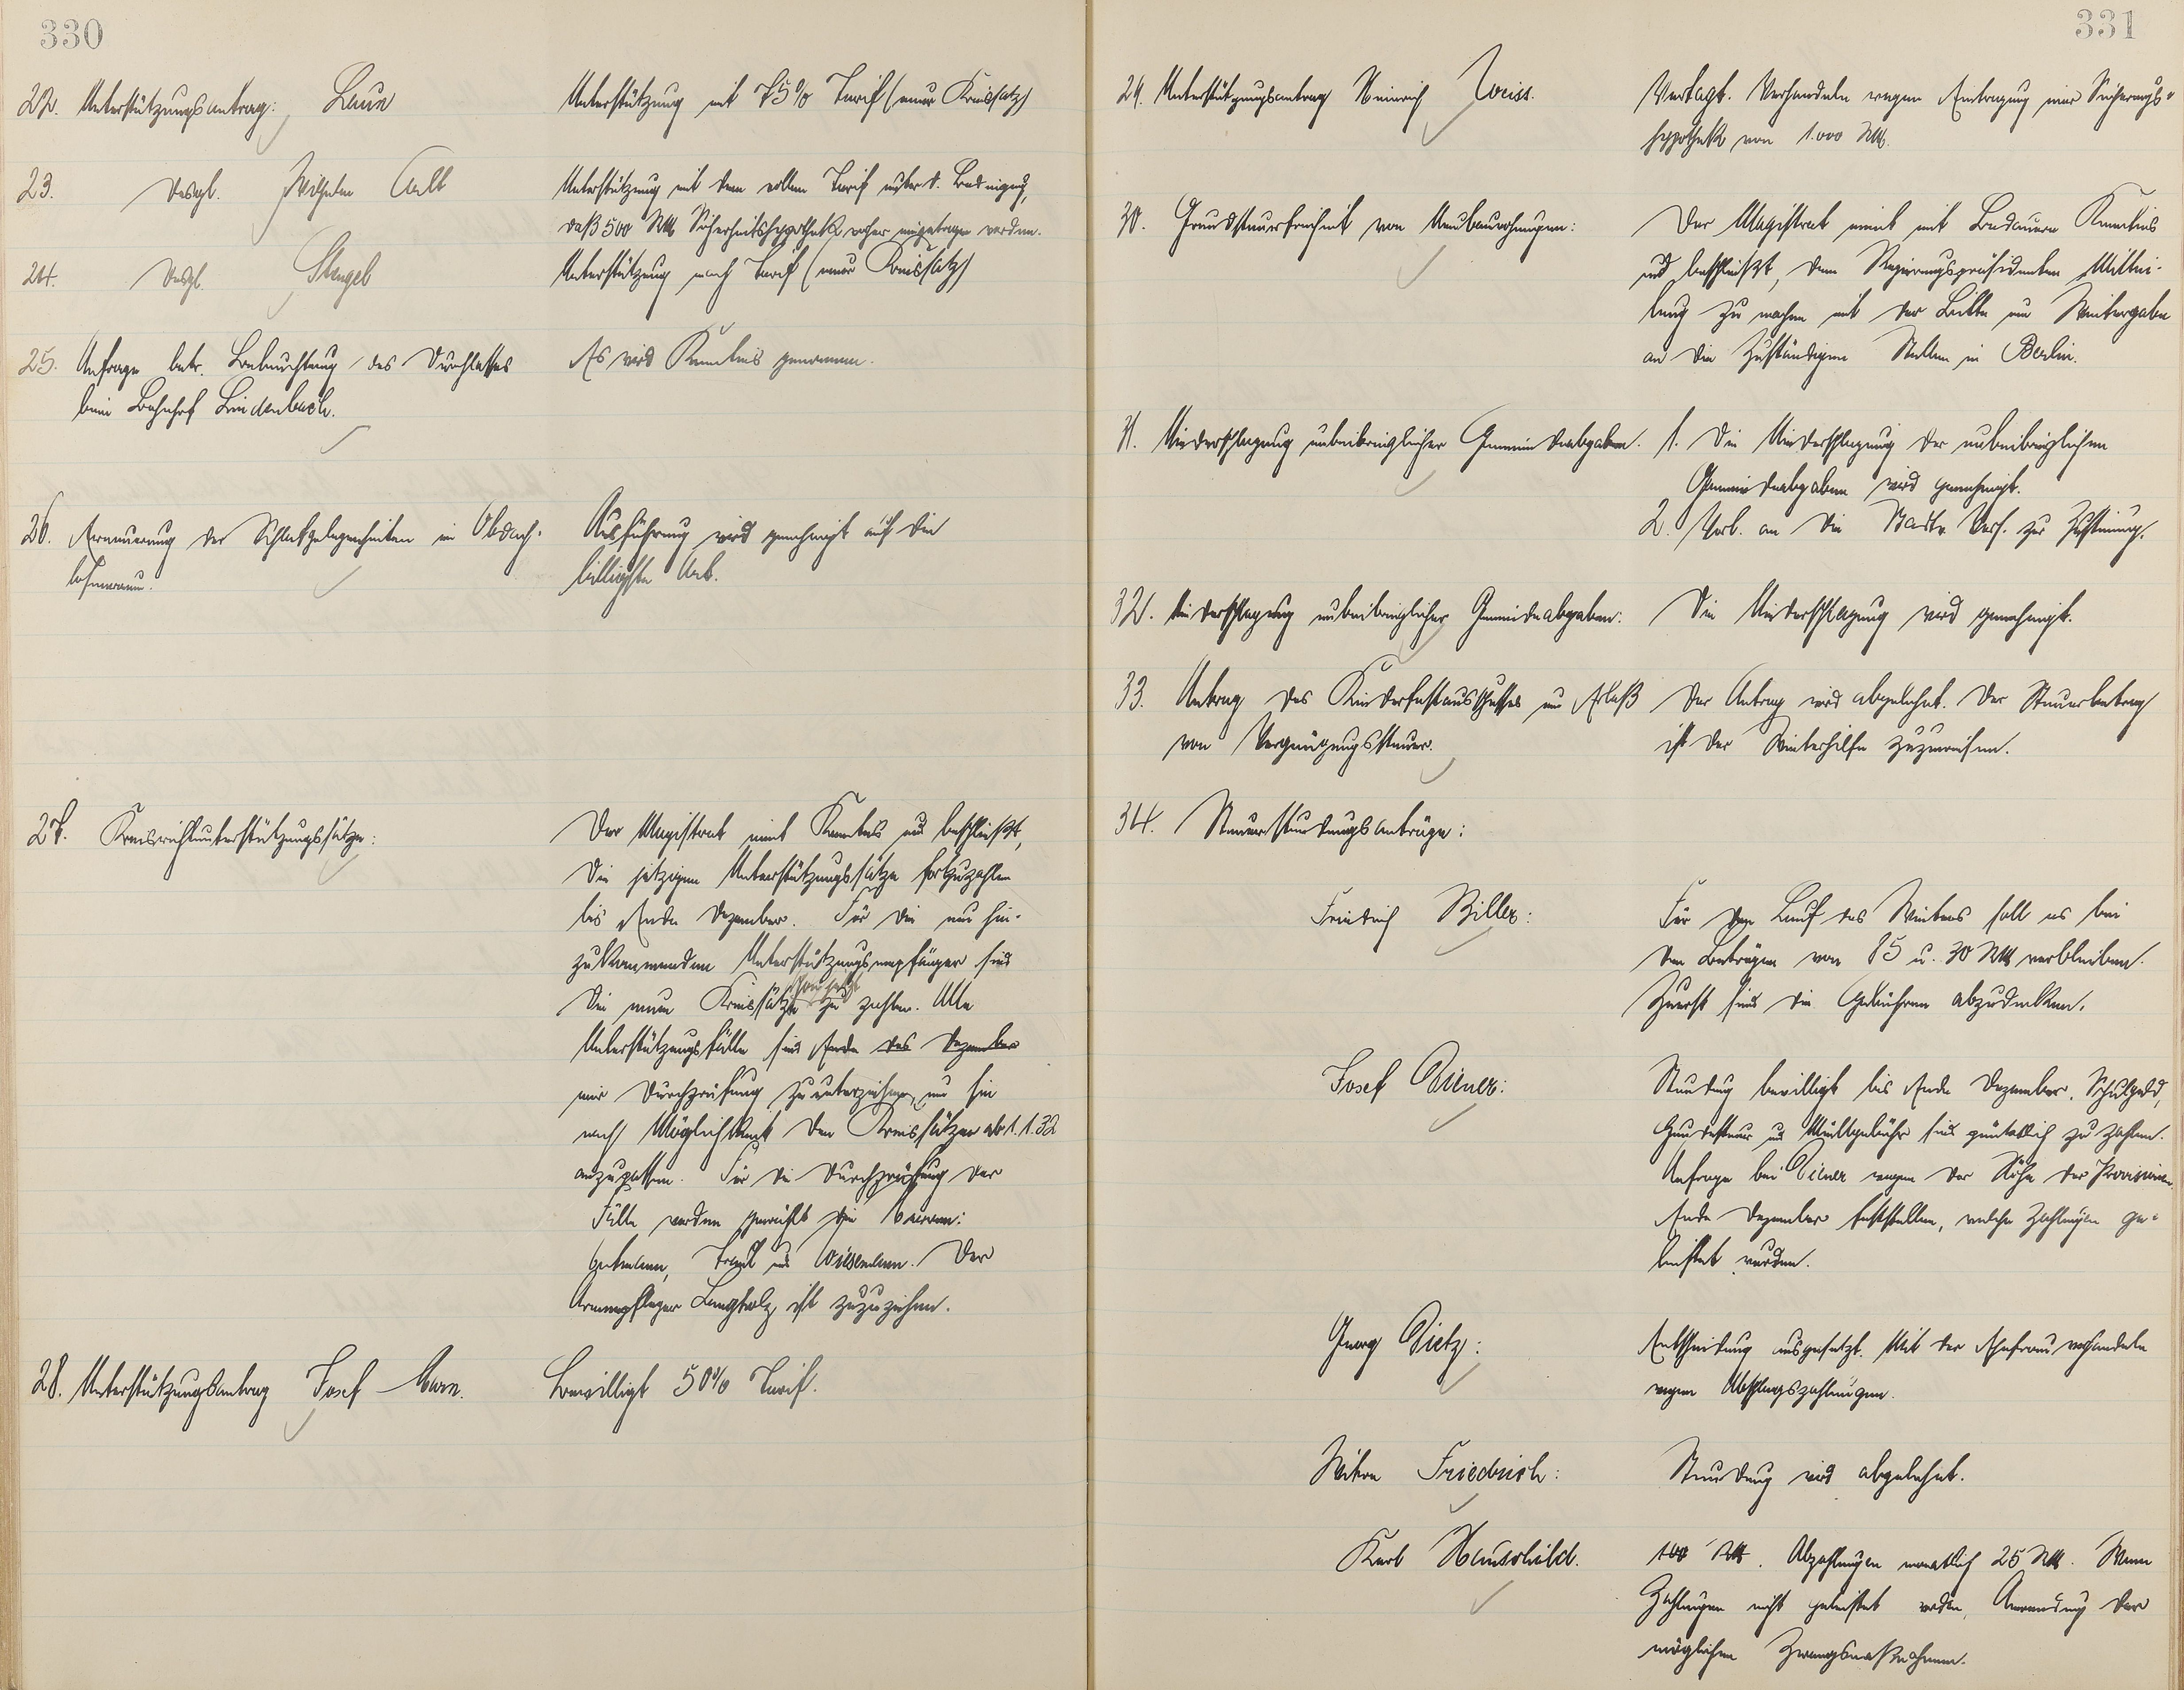 330
22. Unterstützungsantrag: Laun
Unterstützung mit 75% Tarif (neuer Kreissatz)
23. Desgl. Wilhelm Ault
Unterstützung mit dem vollen Tarif unter d. Bedingung,
daß 500 RM Sicherheitshypothek vorher eingetragen werden.
24. Desgl. Stengel
Unterstützung nach Tarif (neuer Kreissatz)
25. Anfrage betr. Beleuchtung des Durchlasses
beim Bahnhof Lindenbach.
Es wird Kenntnis genommen.
26. Erneuerung der Schlafgelegenheiten im Obdach-
losenraum.
Ausführung wird genehmigt auf die
billigste Art.
27. Kreisrichtunterstützungssätze:
Der Magistrat nimt Kenntnis und beschließt,
die jetzigen Unterstützungssätze fortzuzahlen
bis Ende Dezember. Für die neu hin-
zukommenden Unterstützungsempfänger sind
die neuen Kreissätze zu zahlen. Alle
Unterstützungsfälle sind Ende des Dezember
einer Durchprüfung zu unterziehen, um sie
nach Möglichkeit den Kreissätzen ab 1.1.32
anzupassen. Für die Durchprüfung der
Fälle werden gewählt die Herren:
Gutmann, und Wiesemann. Der
Armenpfleger Langholz ist zuzuziehen.
28. Unterstützungsantrag Josef Marn.
Bewilligt 50% Tarif.
331
29. Unterstützungsantrag Heinrich Weiss.
Vertagt. Verhandeln wegen Eintragung einer Sicherungs-
hypothek von 1.000 RM.
30. Grundsteuerfreiheit von Neubauwohnungen:
Der Magistrat nimt mit Bedauern Kenntnis
und beschließt, dem Regierungspräsidenten Mittei-
lung zu machen mit der Bitte um Weitergabe
an die zuständigen Stellen in Berlin.
31. Niederschlagung unbeibringlicher Gemeindeabgaben.
1. Die Niederschlagung der unbeibringlichen
Gemeindeabgaben wird genehmigt.
2. Vorl. an die Stadtv. Vers. zur Zustimmung.
32. Niederschlagung unbeibringlicher Gemeindeabgaben:
Die Niederschlagung wird genehmigt.
33. Antrag des Kinderfestausschusses um Erlaß
von Vergnügungssteuer.
Der Antrag wird abgelehnt. Der Steuerbetrag
ist der Winterhilfe zuzuweisen.
34. Steuerstundungsanträge:
Friedrich Biller:
Für den Lauf des Winters soll es bei
den Beträgen von 85 u. 30 RM verbleiben.
Zuerst sind die Gebühren abzudecken.
Josef Diener:
Stundung bewilligt bis Ende Dezember. Schulgeld,
Hundesteuer und Müllgebühr sind pünktlich zu zahlen.
Anfrage bei Diener wegen der Höhe der Provisionen
Ende Dezember feststellen, welche Zahlungen ge-
leistet wurden.
Georg Dietz:
Entscheidung ausgesetzt. Mit der Ehefrau verhandeln
wegen Abschlagszahlungen.
Witwe Friedrich:
Stundung wird abgelehnt.
Karl Hauschild.
100 RM. Abzahlungen monatlich 25 RM. Wenn
Zahlungen nicht geleistet werden, Anwendung der
möglichen Zwangsmaßnahmen.